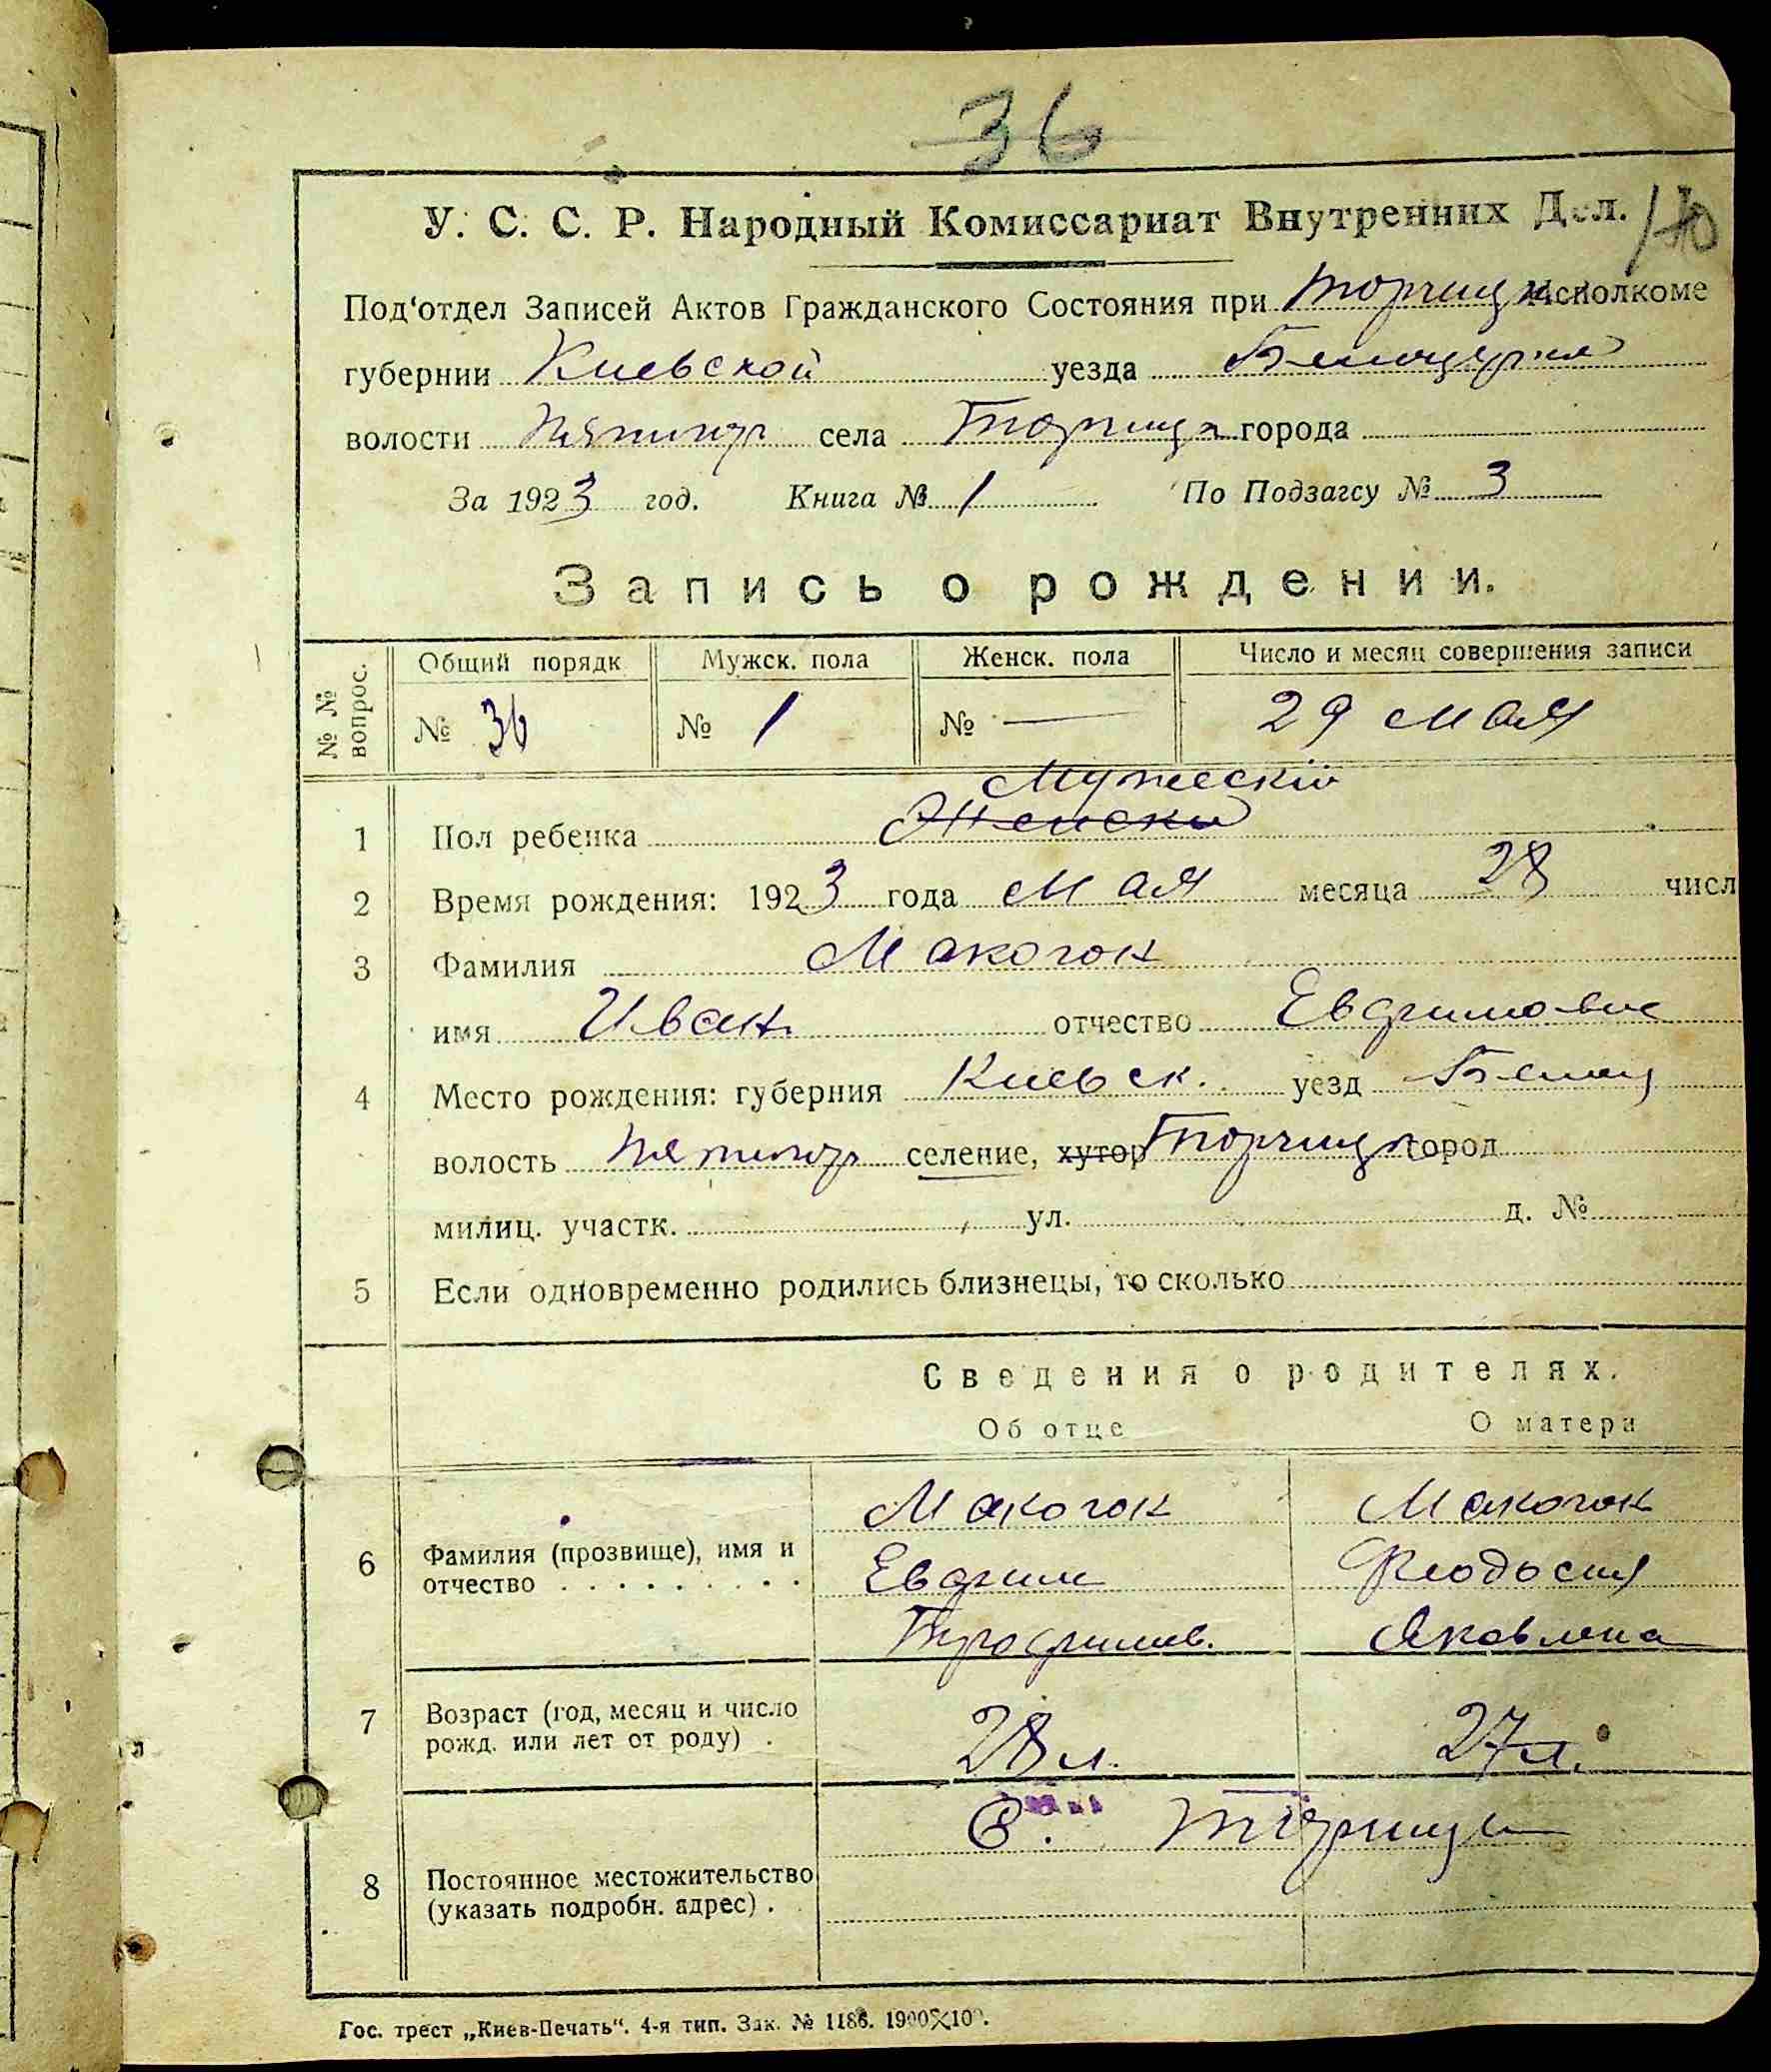 36
У. С. С. Р. Народный Комиссариат Внутренних Дел.
Под‘отдел Записей Актов Гражданского Состояния при Торчицк Исполкоме
губернии Киевской уезда Белоцерков
волости Пятигор села Торчица города
За 1923 год. Книга № 1 По Подзагсу № 3
Запись о рождении.
№ № вопрос. Общий порядк Мужск. пола Женск. пола Число и месяц совершения записи
№ 36 № 1 № — 29 мая
Мужескій
1 Пол ребенка Женски
2 Время рождения: 1923 года Мая месяца 28 числ
3 Фамилия Макогон
имя Иван отчество Евфимович
4 Место рождения: губерния Киевск. уезд Белоц
волость Пятигор селение, хутор Торчица город
милиц. участк. ул. д. №
5 Если одновременно родились близнецы, то сколько
Сведения о родителях.
Об отце О матери
Макогон Макогон
6 Фамилия (прозвище), имя и отчество Евфим Феодосия
Трофимов. Яковлена
7 Возраст (год, месяц и число рожд. или лет от роду) 28 л. 27 л.
С. Торчица
8 Постоянное местожительство
(указать подробн. адрес)
Гос. трест „Киев-Печать“. 4-я тип. Зак. № 1186. 1900×100.